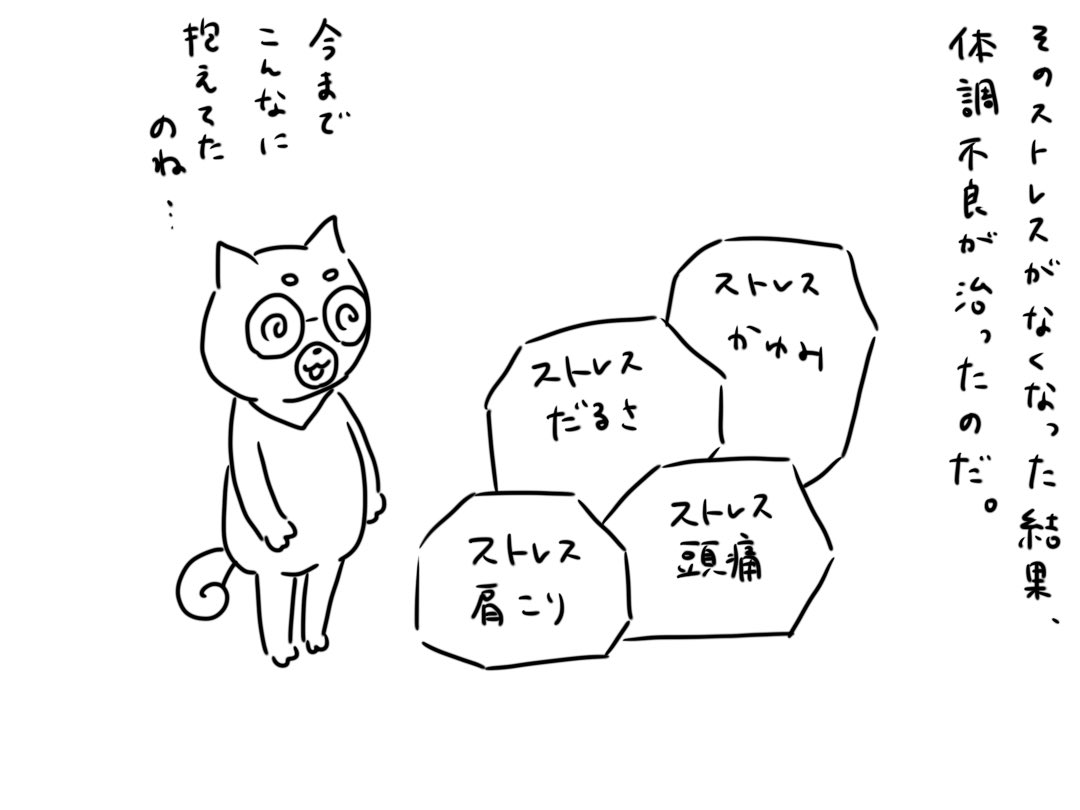 そのストレスがなくなった結果、
体調不良が治ったのだ。
ストレス
かゆみ
ストレス
だるさ
ストレス
頭痛
ストレス
肩こり
今まで
こんなに
抱えてた
のね…